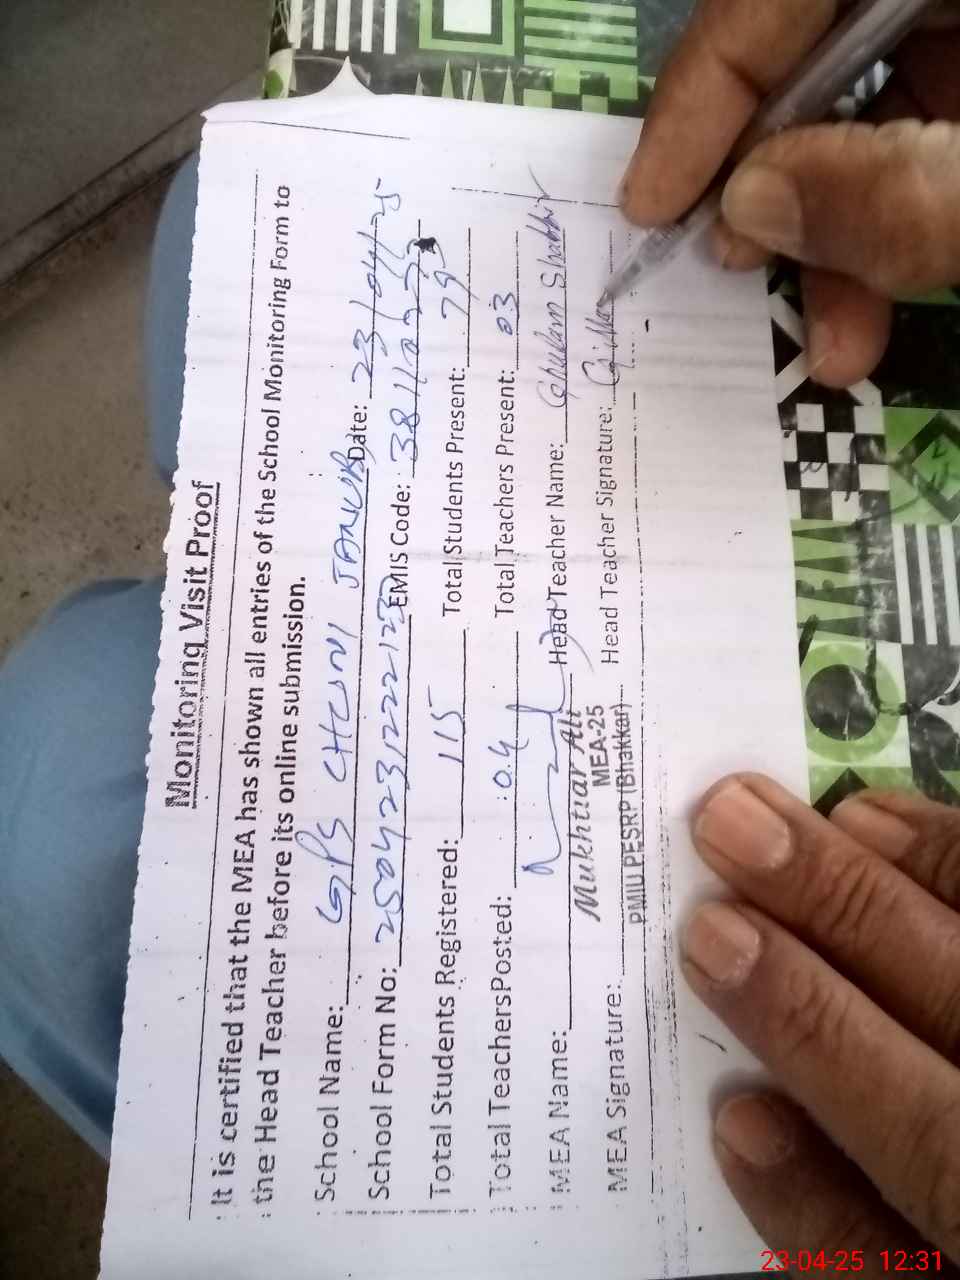 Monitoring Visit Proof
It is certified that the MEA has shown all entries of the School Monitoring Form to
the Head Teacher before its online submission.
School Name: GPS CHUNI JANUBI Date: 23/04/25
School Form No: EMIS Code:
Total Students Registered: 115 Total Students Present: 79
Total TeachersPosted: 04 Total Teachers Present: 03
MEA Name: Head Teacher Name: Ghulam Shabbir
Mukhtiar Ali
MEA-25
MEA Signature: PMIU PESRP (Bhakkar) Head Teacher Signature:
23-04-25 12:31